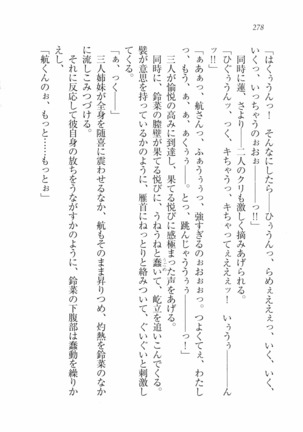 278
「はくぅうんっ！　そんなにしたら――ひぅうんっ、らめぇえぇっ、いく、いく、
いくっ、いっちゃうのぉおぉ――っ!!」
同時に蓮、さより――二人のクリも激しく摘みあげられる。
「ひぐぅうんッ、っく、キちゃうっ、キちゃってぇえぇえッ！　いぅうぅ――ん
ッ!!」
「あぁああっ、航さんっ、ふぁうぅうっ、強すぎるのぉおぉぉっ。つよくてぇ、わたし
っ、もう、ぁ、ぁぁ、ぁくぅぅ――。とっ、跳んじゃうぅぅぅ――っ！」
三人が愉悦の高みに到達し、果てる悦びに感極まった声をあげる。
同時に、鈴菜の膣壁が果てる悦びに、うねうねと蠢いて、屹立を追いこんでくる。
襞が意思を持っているかのように、雁首にねっとりと絡みついて、ぐいぐいと刺激し
てくる。
「ぁ、っく――」
三人姉妹が全身を随喜に震わせるなか、航もそのまま昇りつめ、灼熱を鈴菜のなか
に流しこみつづける。
それに反応して彼自身の放ちをうながすかのように、鈴菜の下腹部は蠕動を繰りか
えし、
「航くんのぉ、もっと……もっとぉ」